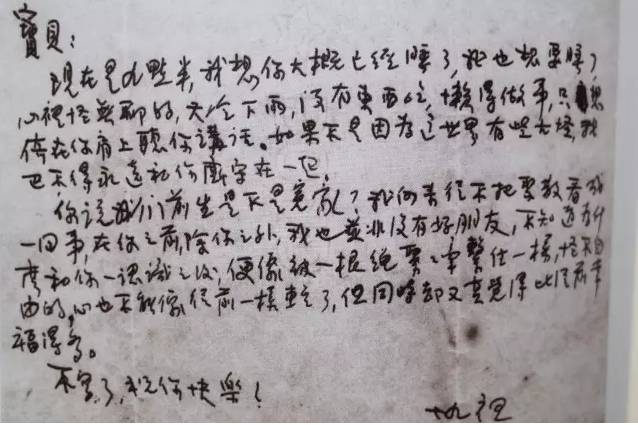 寶貝：
現在是九點半，我想你大概已經睡了，我也想要睡了
心裡怪無聊的，天冷下雨，沒有東西吃，懶得做事，只想
倚在你肩上聽你講話。如果不是因為這世界有些古怪，我
巴不得永遠和你厮守在一起。
你說我們前生是不是冤家？我向來從不把聚散看成
一回事，在你之前，除你之外，我也並非沒有好朋友，不知道為什
麼和你一認識之後，便像被一根繩緊緊牽繫住一樣，怪不自
由的，心也不能像從前一樣輕了，但同時卻又真覺得比從前幸
福得多。
不寫了，祝你快樂！